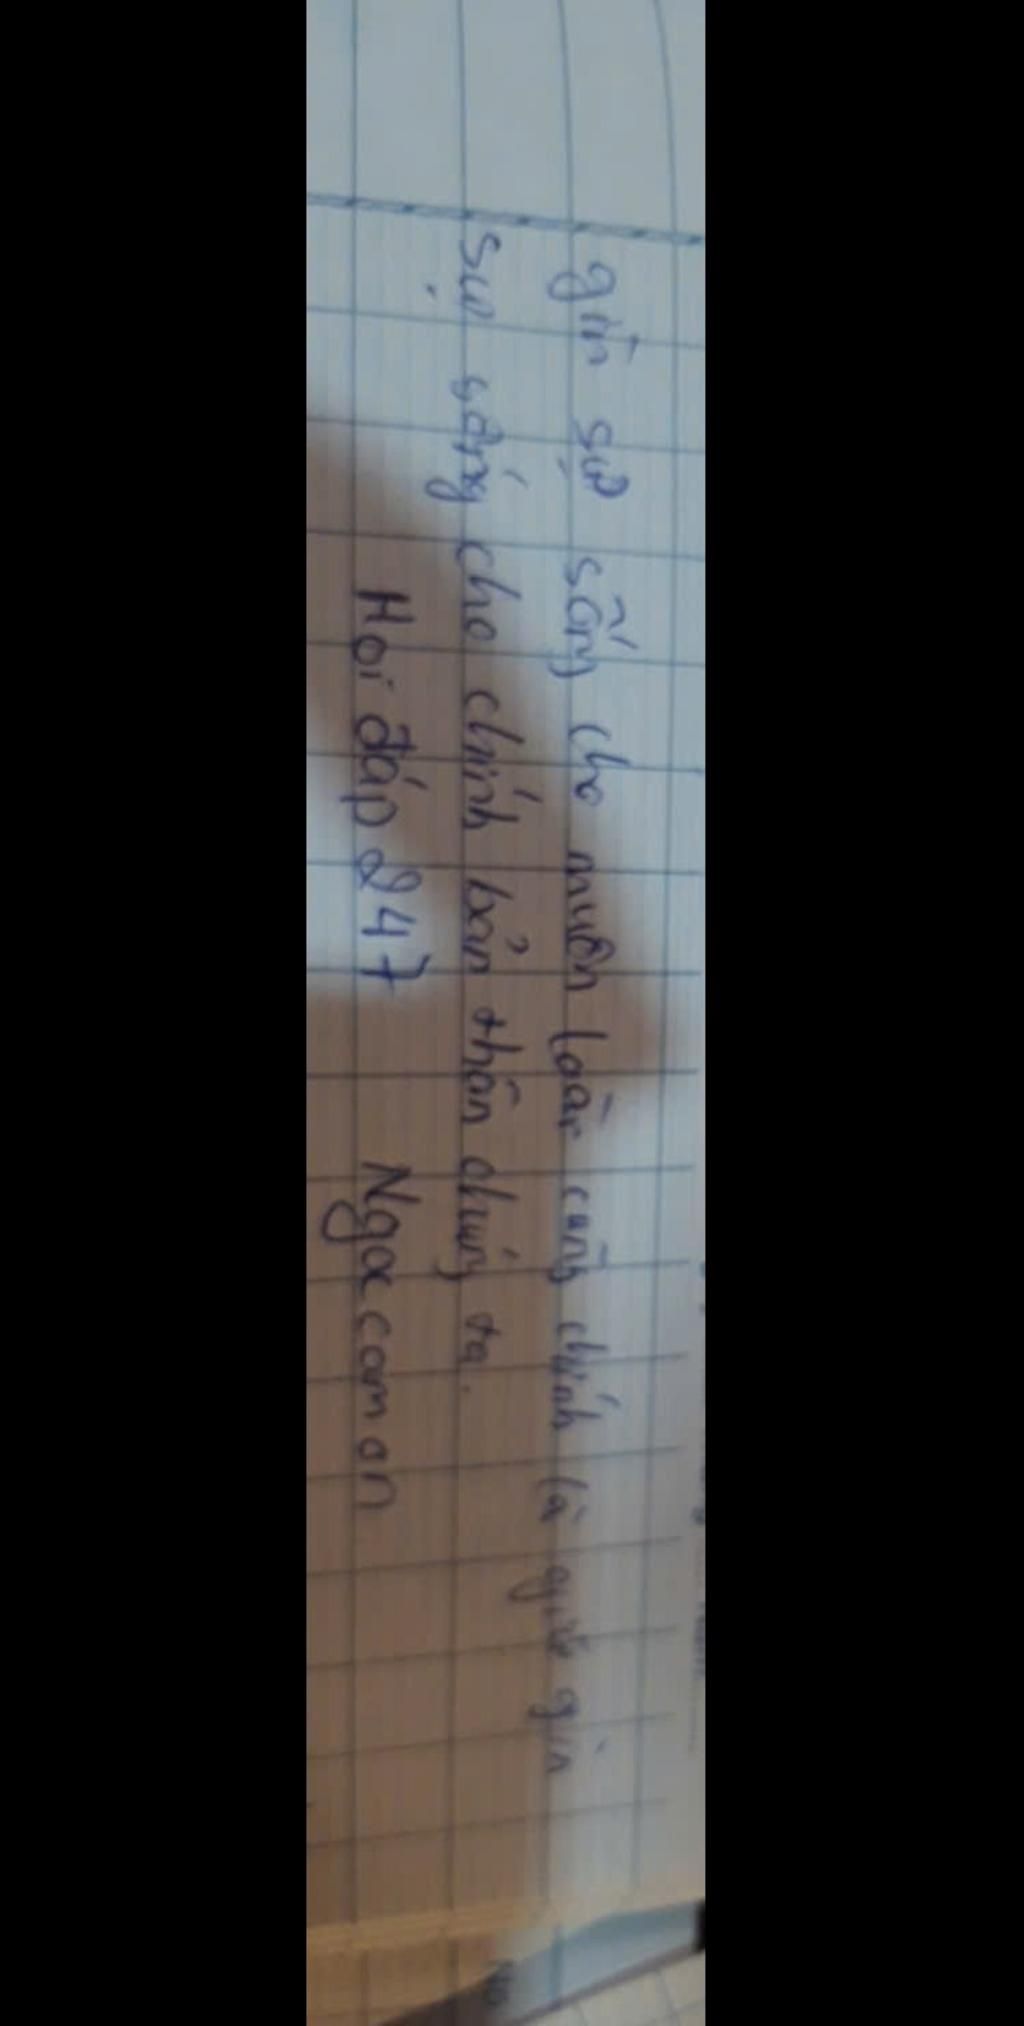 gìn sự sống cho muôn loài cũng chính là giữ gìn
sự sống cho chính bản thân chúng ta.
Hoi đáp 247 Ngoccamon